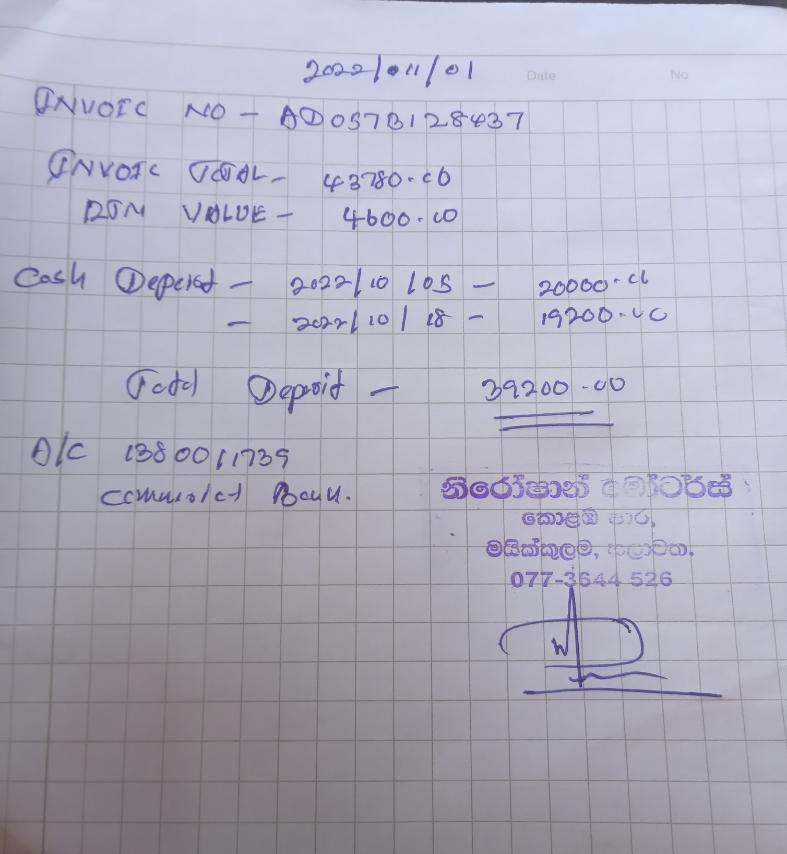 2022/011/01
Date No
INVOIC NO - AD057B128437
INVOIC TOTAL - 43780.00
RTN VALUE - 4600.00
Cash Deposit - 2022/10/05 - 20000.00
- 2022/10/18 - 19200.00
Total Deposit - 39200.00
A/C 1380011739
Commercial Bank.
නිරෝෂාන් මෝටර්ස්
කොළඹ පාර,
මයික්කුලම,
077-3644 526